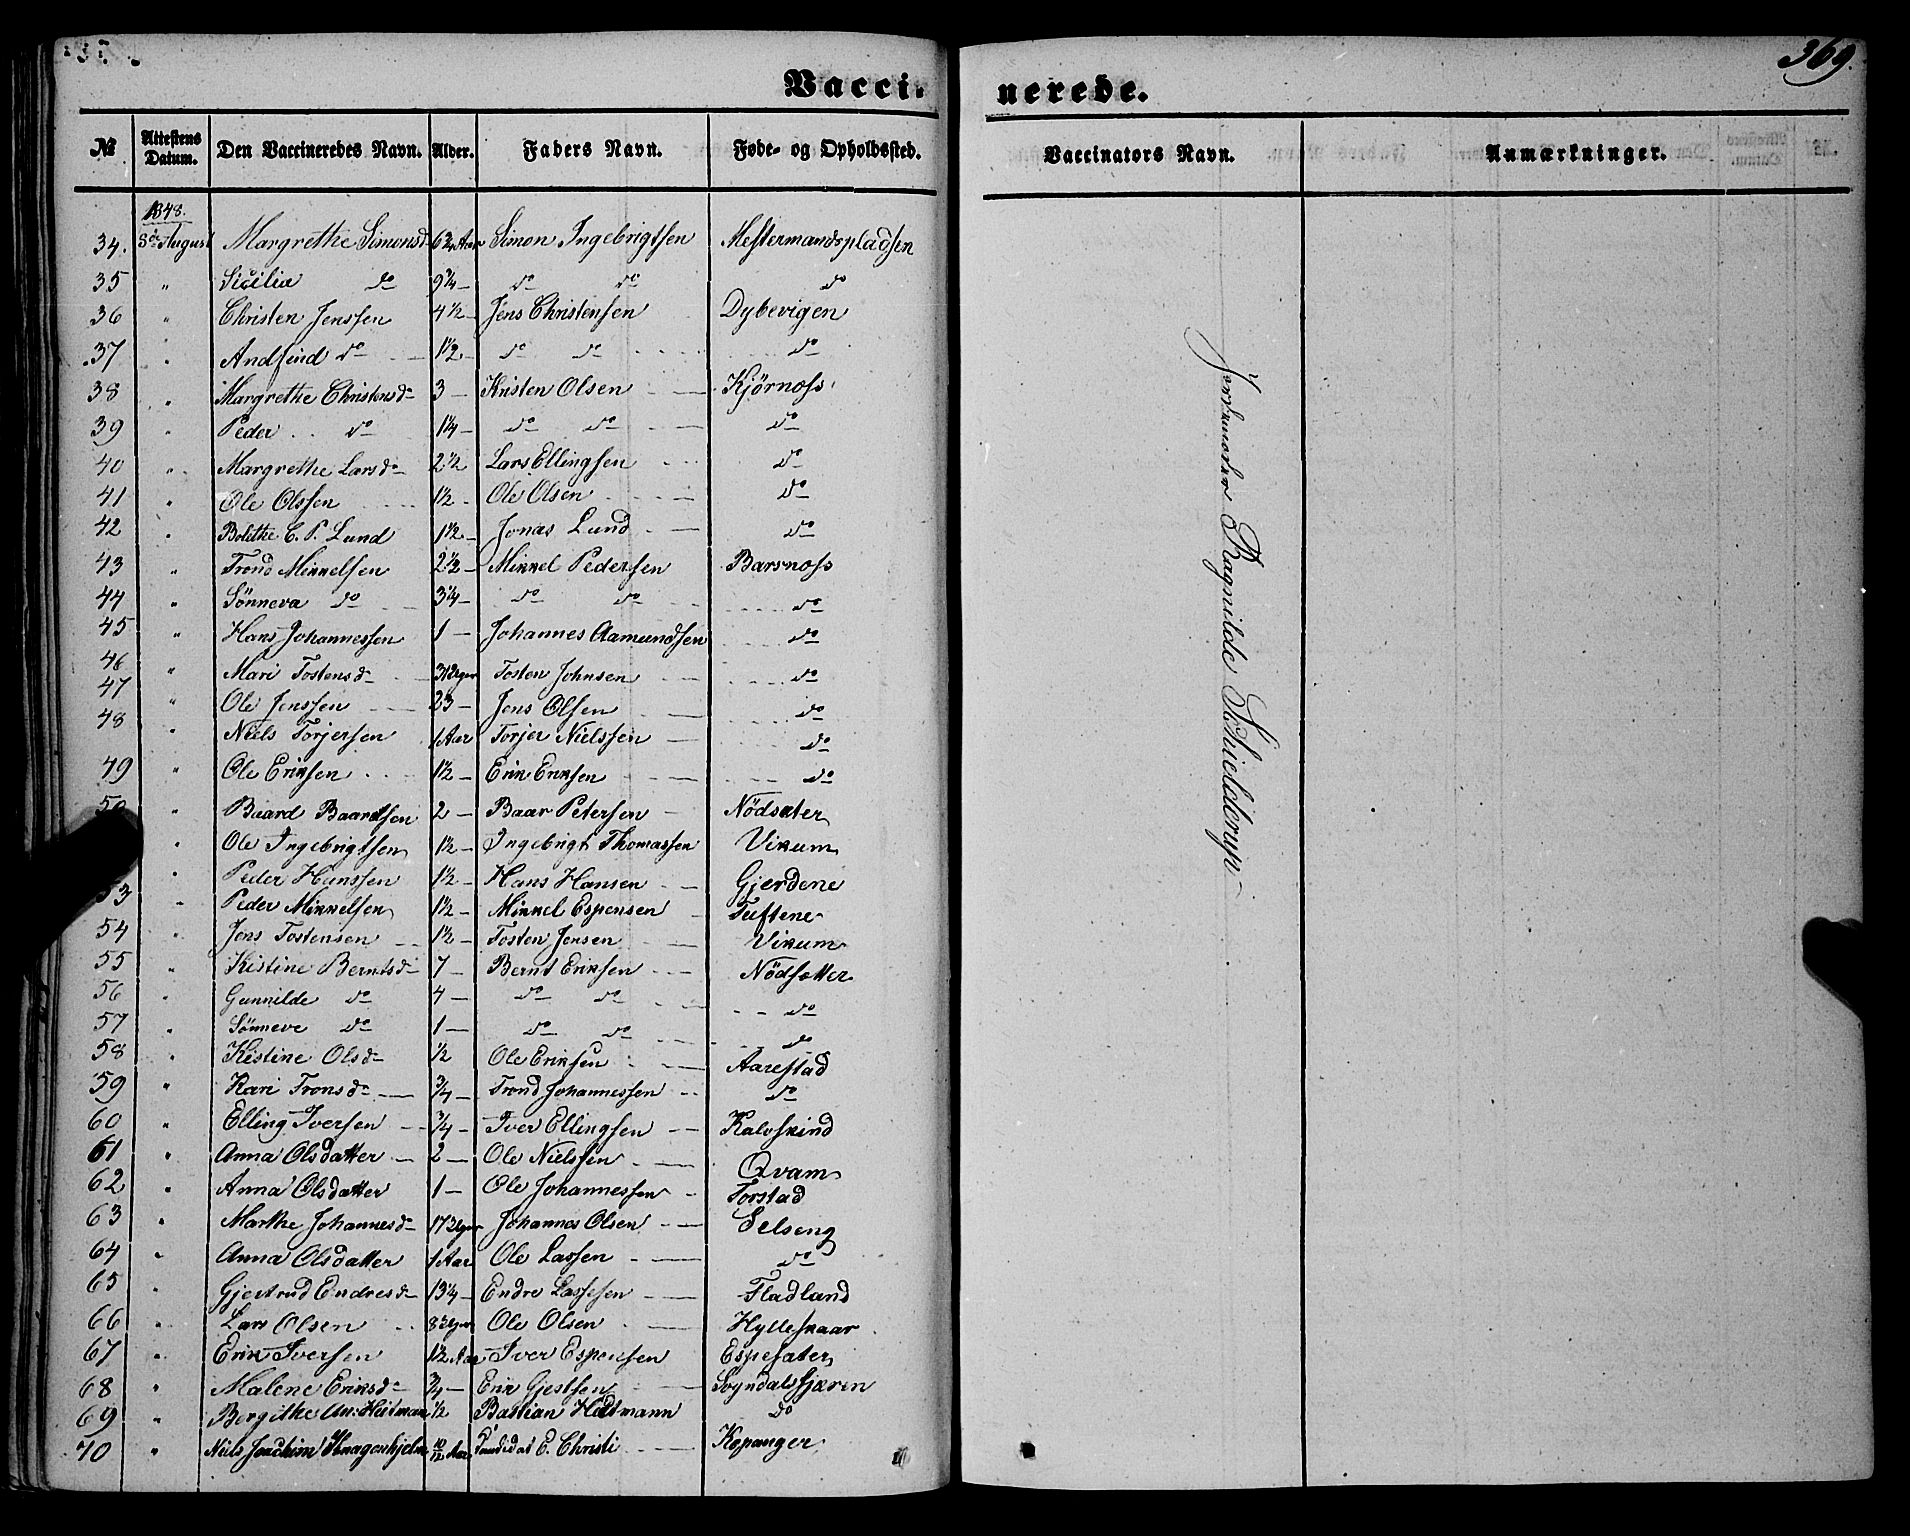 369.
Vacci- nerede.
№ Attestens Datum. Den Vaccineredes Navn. Alder. Faders Navn. Føde- og Opholdssted. Vaccinators Navn. Anmærkninger.
1848.
34. 3die August Margrethe Simonsd. 6 3/4 Aar Simon Ingebrigtsen Mestermandspladsen
35 " Sicilia do 9 3/4 – do do do
36 " Christen Jenssen 4 1/2 – Jens Christensen Dybevigen
37 " Andfind do 1 1/2 – do do do
38 " Margrethe Christensd 3 – Kristen Olsen Kjörnoss
39 " Peder do 1 1/4 – do do do
40 " Margrethe Larsd 2 1/2 Lars Ellingsen do
41 " Ole Olssen 1 1/2 – Ole Olsen do
42 " Bolethe C. P. Lund 1 1/2 – Jonas Lund do
43 " Trond Mikkelsen 2 1/2 – Mikkel Pedersen Barsnoss
44 " Sönneva do 3 1/4 – do do do
45 " Hans Johannessen 1 – Johannes Aamundsen do
46 " Mari Tostensd Tosten Johnsen do
47 " Ole Jenssen 23 – Jens Olsen do
48 " Niels Torjersen 1 Aar Torjer Nielssen do
49 " Ole Eriksen 1 1/2 – Erik Eriksen do
50 " Baard Baardsen 2 – Baar Petersen Nödsæter
" Ole Ingebrigtsen 1 1/2 – Ingebrigt Thomassen Vikum
" Peder Hanssen 1 1/2 – Hans Hansen Gjerdene
53 " Peder Mikkelsen 1 1/2 – Mikkel Espensen Tuftene
54 " Jens Tostensen 1 1/2 – Tosten Jensen Vikum
55 " Kistine Berntsd 7 – Bernt Eriksen Nödsætter
56 " Gunnilde do 4 – do do do
57 " Sönneve do 1 – do do do
58 " Kistine Olsd 1/2 Ole Eriksen Aarestad
59 " Kari Tronsd 3/4 – Trond Johannessen do
60 " Elling Iversen 3/4 – Iver Ellingsen Kalvskind
61 " Anna Olsdatter 2 – Ole Nielssen Qvam
62 " Anna Olsdatter 1 – Ole Johannessen Torstad
63 " Marthe Johannesd 17 Uger Johannes Olsen Selseng
64 " Anna Olsdatter 1 Aar Ole Lassen do
65 " Gjertrud Endresd 13/4 – Endre Lassesen Fladland
66 " Lars Olsen 8 Uger Ole Olsen Hylleskaar
67 " Erik Iversen 1 1/2 Aar Iver Espensen Espesæter
68 " Malene Eriksd 3/4 – Erik Gjestsen Sogndalsfjæren
69 " Bergithe An: Heitman 1/2 Bastian Heitmann do
70 " Niels Joachim Knagenhjelm 10/12 Aar Candidat E. Christi Kopanger
Jordemoder Ragnilde Schielderup